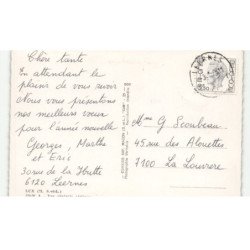 Chère tante
En attendant le
plaisir de vous revoir
Nous vous présentons
nos meilleurs voeux
pour l'année nouvelle
Georges, Marthe
et Eric
30 rue de la Hutte
6120 Leernes
Mme G Scoubeau
45 rue des Alouettes
7100 La Louvière